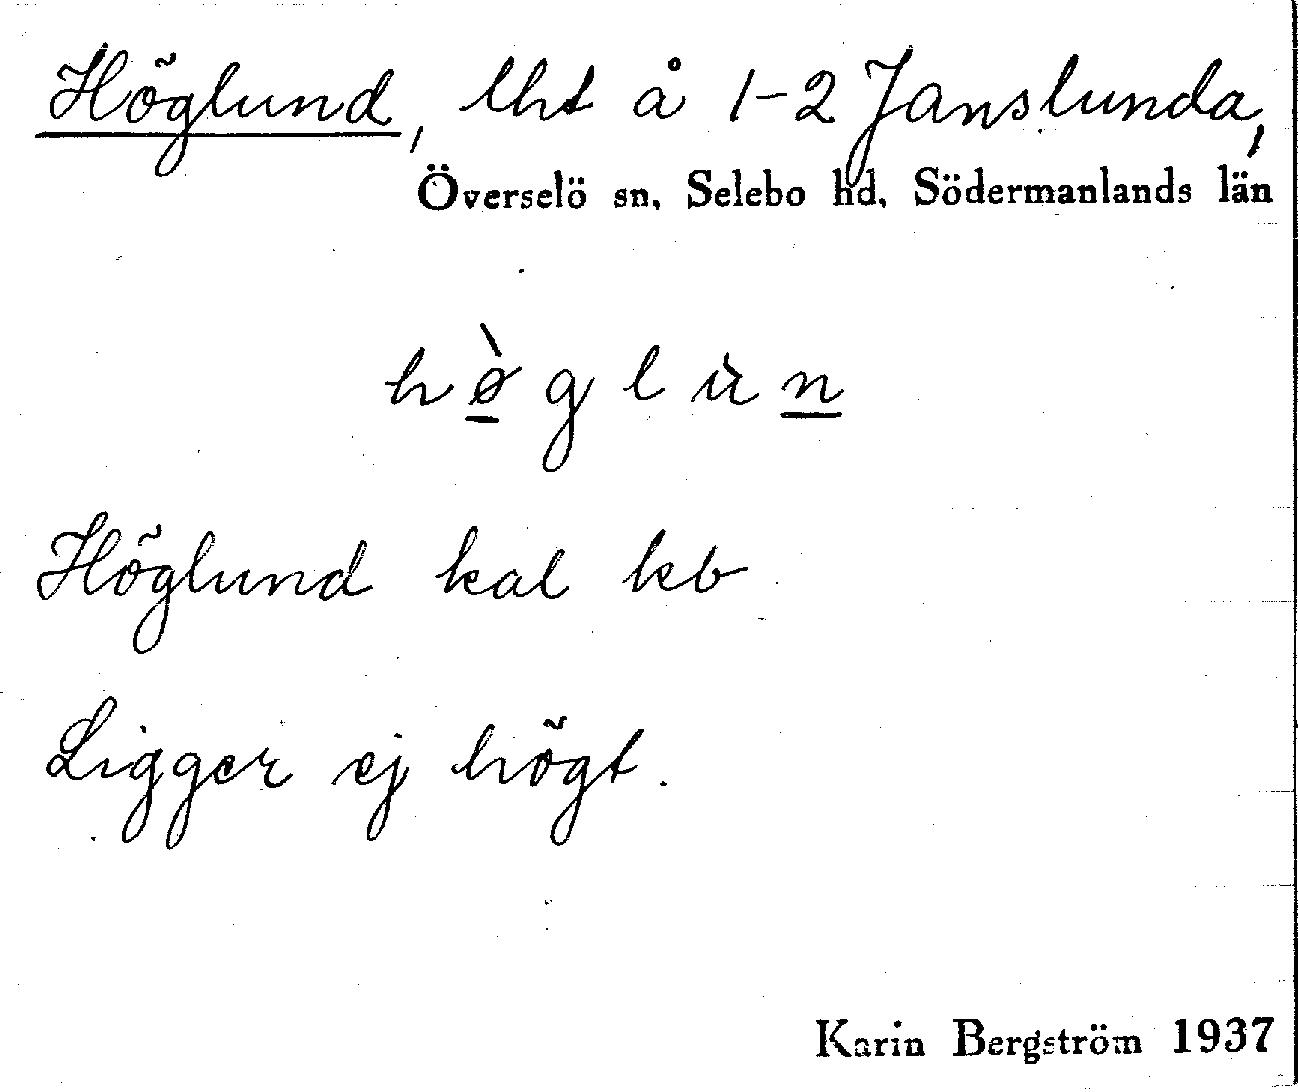 Höglund, lht å 1-2 Janslunda,
Överselö sn, Selebo hd, Södermanlands län
hø̀glùn
Höglund kal kb
Ligger ej högt.
Karin Bergström 1937